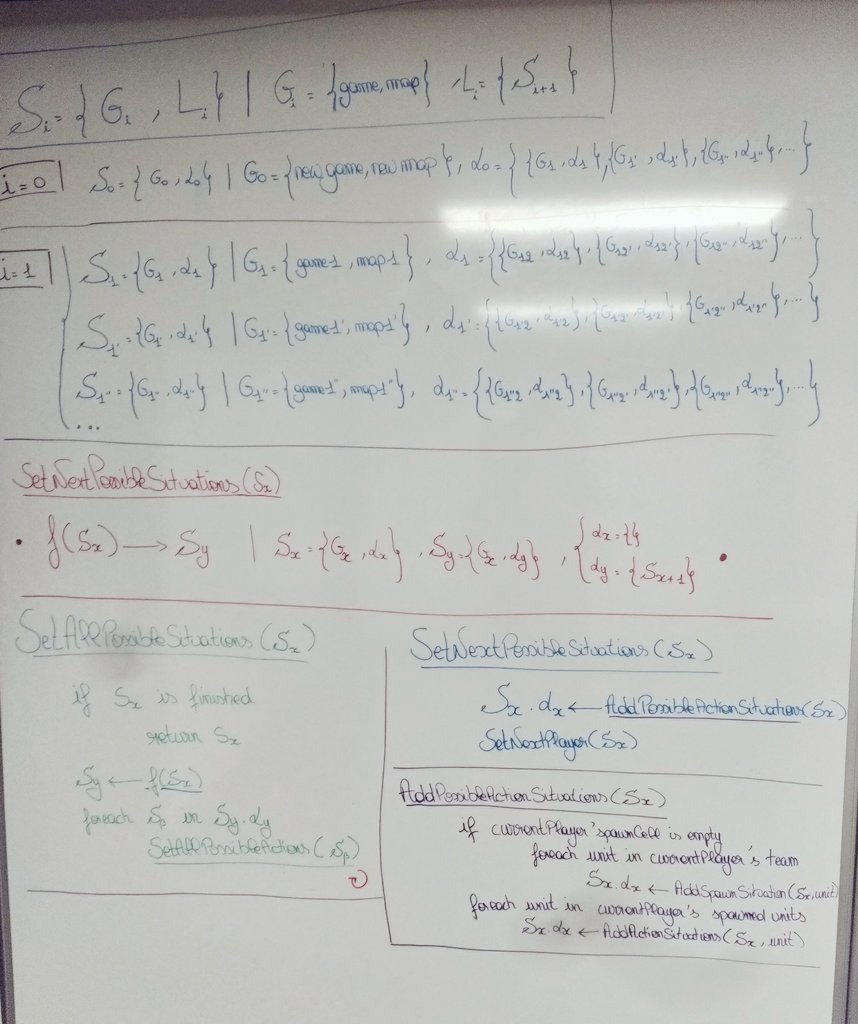 S_i = { G_i , L_i } | G_i = {game, map} , L_i = { S_{i+1} }
i=0 | S_0 = { G_0 , α_0 } | G_0 = {new game, new map} , α_0 = { {G_1 , α_1}, {G_1' , α_1'}, {G_1'' , α_1''}, ... }
i=1 | S_1 = {G_1 , α_1} | G_1 = {game1 , map1} , α_1 = {{G_12 , α_12} , {G_12' , α_12'} , {G_12'' , α_12''}, ... }
S_1' = {G_1' , α_1'} | G_1' = {game1' , map1'} , α_1' = {{G_1'2 , α_1'2} , {G_1'2' , α_1'2'} , {G_1'2'' , α_1'2''}, ... }
S_1'' = {G_1'' , α_1''} | G_1'' = {game1'' , map1''} , α_1'' = {{G_1''2 , α_1''2} , {G_1''2' , α_1''2'} , {G_1''2'' , α_1''2''}, ... }
...
SetNextPossibleSituations(S_x)
• f(S_x) → S_y | S_x = {G_x , α_x} , S_y = {G_x , α_y} , { α_x = {}
α_y = {S_{x+1}} •
SetAllPossibleSituations(S_x)
if S_x is finished
return S_x
S_y ← f(S_x)
foreach S_β in S_y.α_y
SetAllPossibleActions(S_β)
SetNextPossibleSituations(S_x)
S_x.α_x ← AddPossibleActionSituations(S_x)
SetNextPlayer(S_x)
AddPossibleActionSituations(S_x)
if currentPlayer's spawnCell is empty
foreach unit in currentPlayer's team
S_x.α_x ← AddSpawnSituation(S_x, unit)
foreach unit in currentPlayer's spawned units
S_x.α_x ← AddActionSituations(S_x, unit)